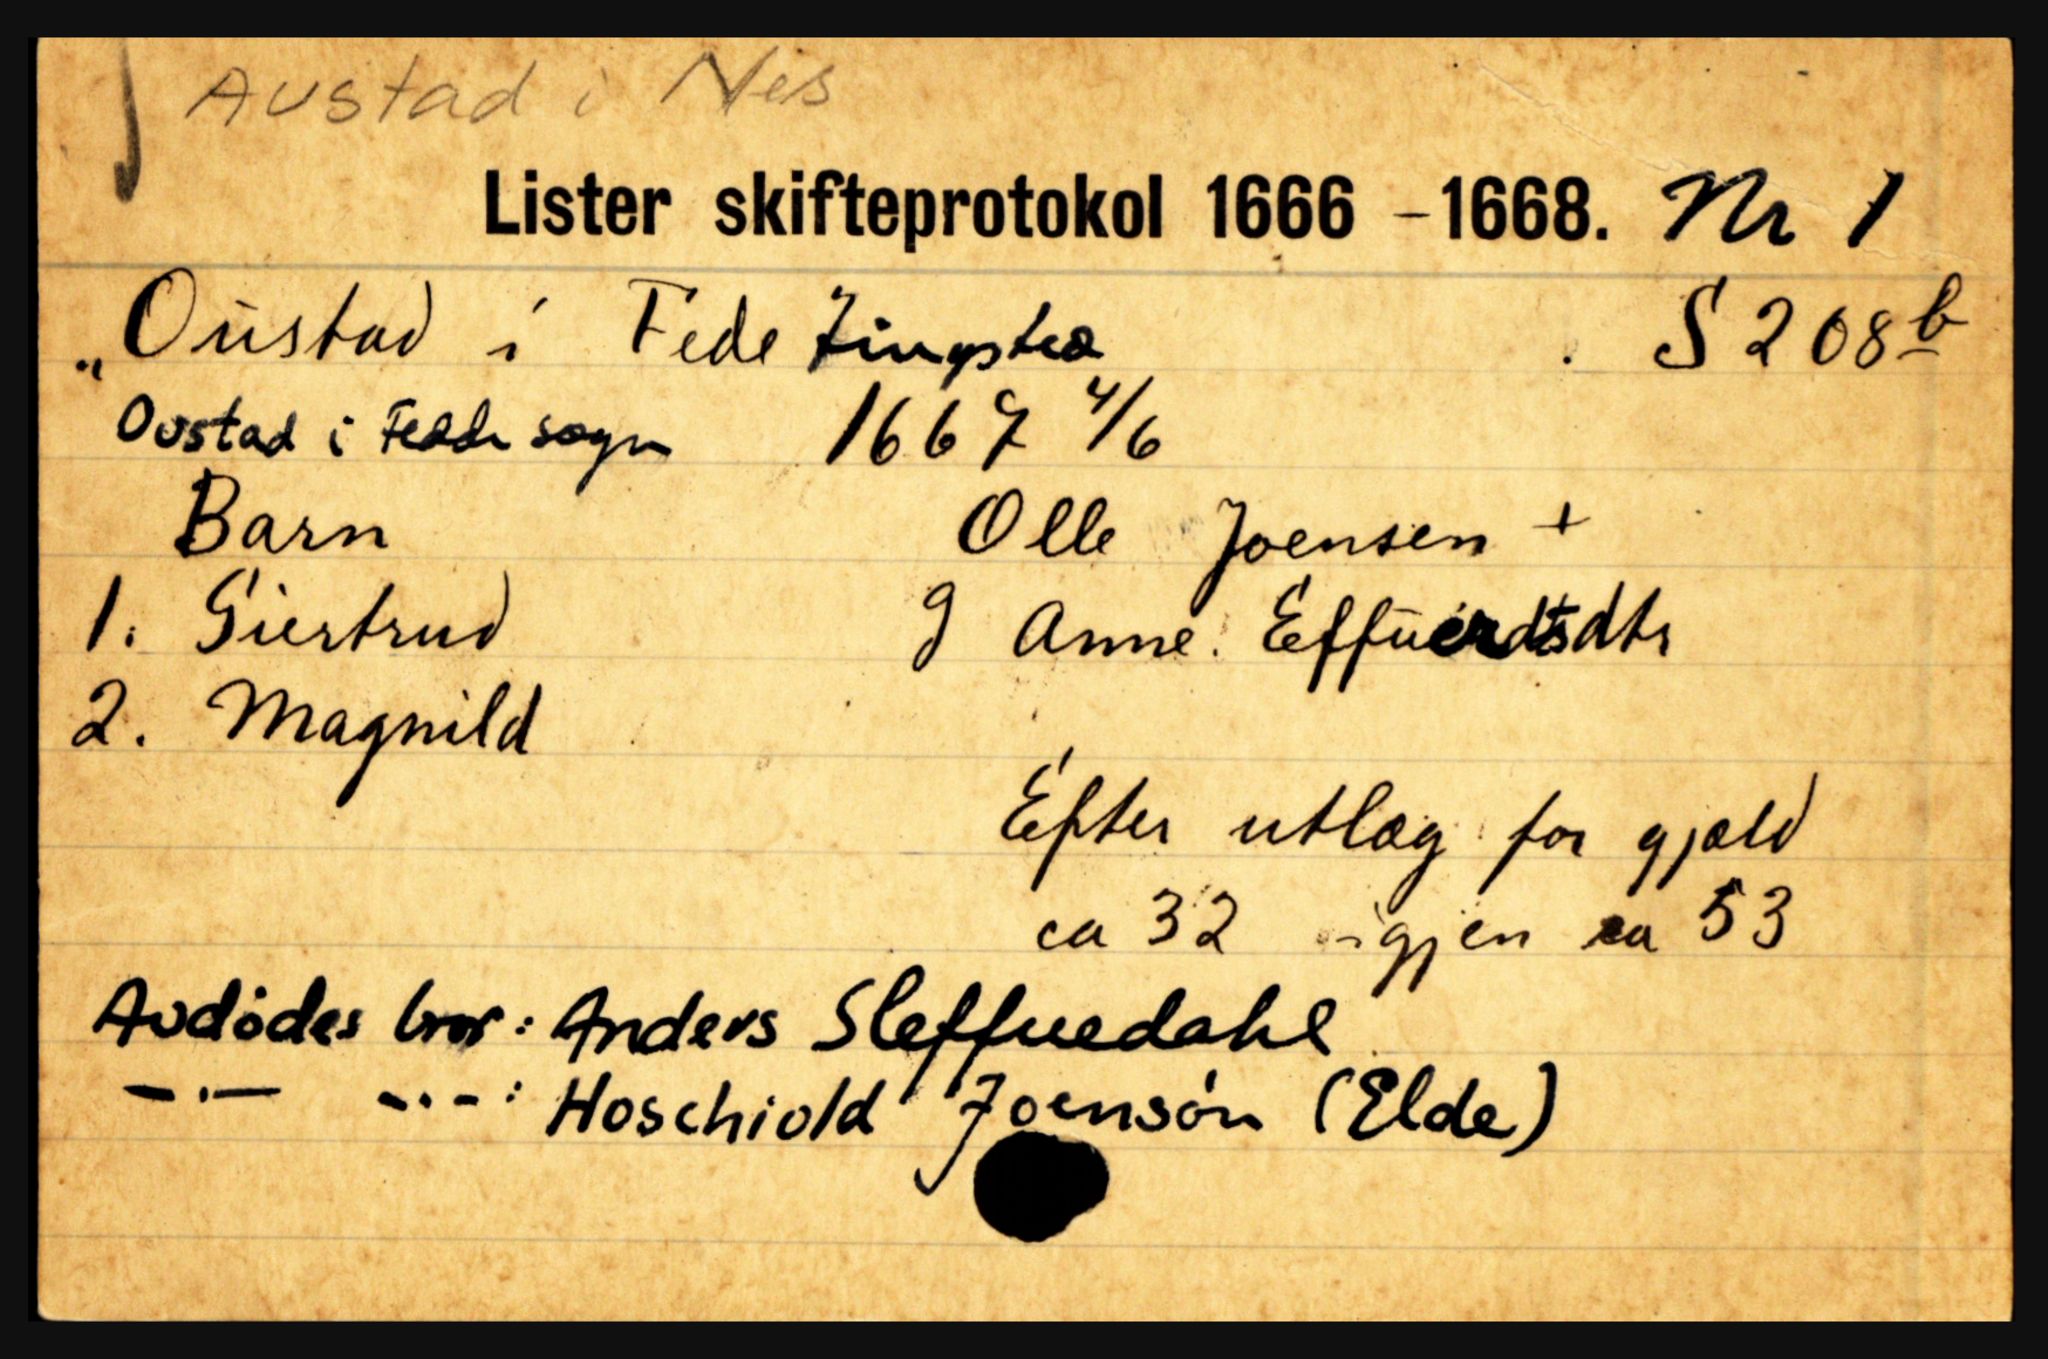 Austad i Nes
Lister skifteprotokol 1666 - 1668. Nr 1
„Oŭstad i Fede tingsted S 208 b
Ovstad i Fedde sogn 1667 4/6
Barn Olle Joensen +
1. Giertrud g Anne Effŭerdtsdtr
2. Magnild
Efter utlæg for gjæld
ca 32 igjen ca 53
Avdödes bror: Anders Sleffuedahl
— . — - . - : Hoschiold Joensön (Elde)